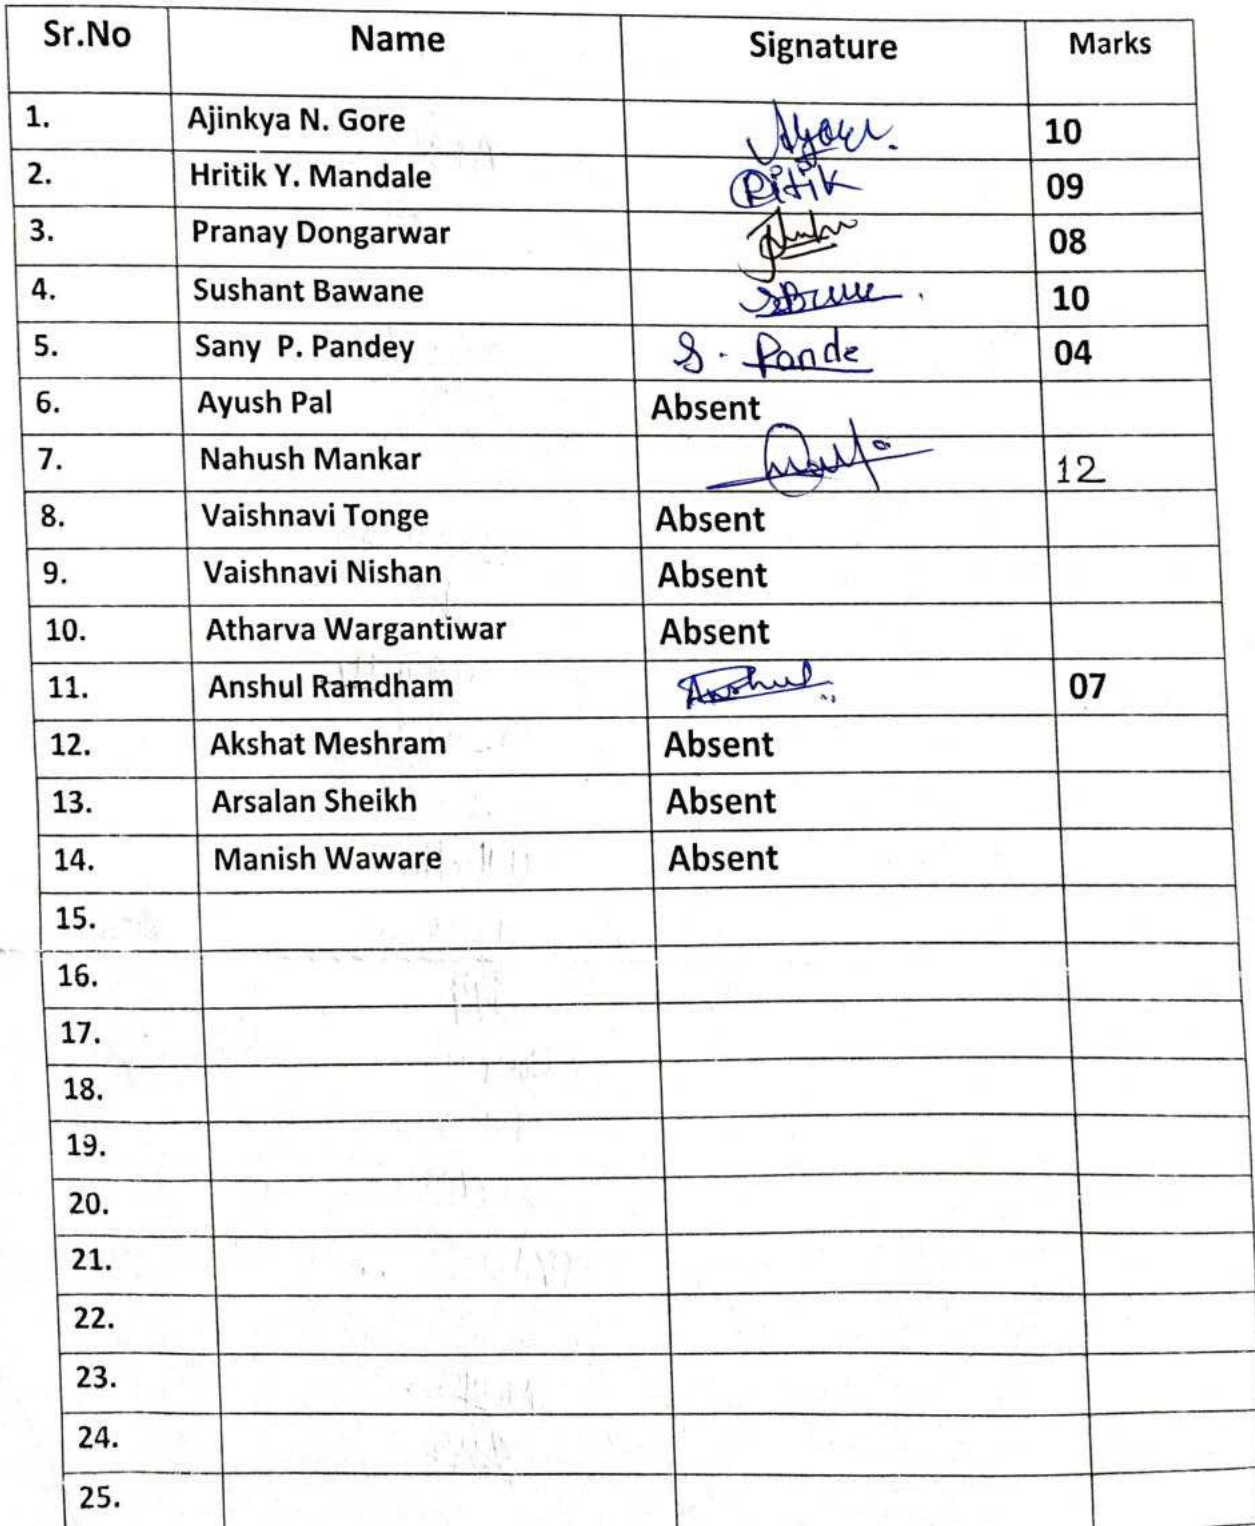 Sr.No Name Signature Marks
1. Ajinkya N. Gore 10
2. Hritik Y. Mandale Ritik 09
3. Pranay Dongarwar 08
4. Sushant Bawane 10
5. Sany P. Pandey S. Pande 04
6. Ayush Pal Absent
7. Nahush Mankar 12
8. Vaishnavi Tonge Absent
9. Vaishnavi Nishan Absent
10. Atharva Wargantiwar Absent
11. Anshul Ramdham Anshul 07
12. Akshat Meshram Absent
13. Arsalan Sheikh Absent
14. Manish Waware Absent
15.
16.
17.
18.
19.
20.
21.
22.
23.
24.
25.